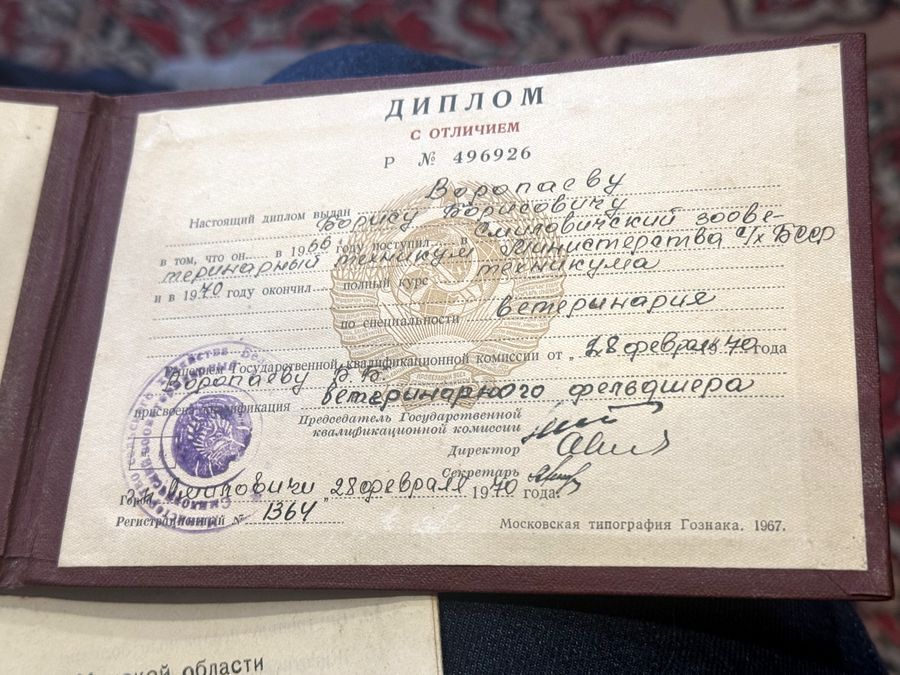 ДИПЛОМ
С ОТЛИЧИЕМ
Р № 496926
Воропаеву
Настоящий диплом выдан Борису Борисовичу
в том, что он в 1966 году поступил в Смиловичский зоове-
теринарный техникум Министерства с/х БССР
и в 1970 году окончил полный курс техникума
по специальности ветеринария
Решением Государственной квалификационной комиссии от „28 февраля 1970 года
Воропаеву Б.Б.
присвоена квалификация ветеринарного фельдшера
Председатель Государственной
квалификационной комиссии
Директор
Секретарь
Город Смиловичи „28 февраля 1970 года.
Регистрационный № 1364
Московская типография Гознака. 1967.
области